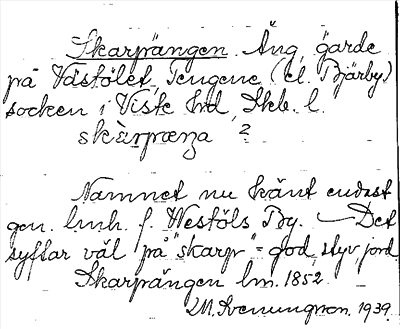 Skarpängen. Äng, gärde
på Västölet, Tengene, (el. Bjärby)
socken i Viste hd, Skb. l.
skàrpæŋa ²
Namnet nu känt endast
gen. lmh. f. Westöls By. — Det
syftar väl på "skarp" = god, styv, jord
Skarpängen lm. 1852.
M. Svenungsson. 1939.